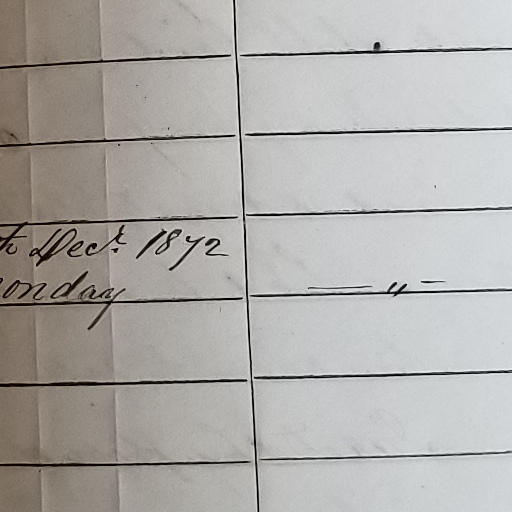 th Decr. 1872
onday — " –